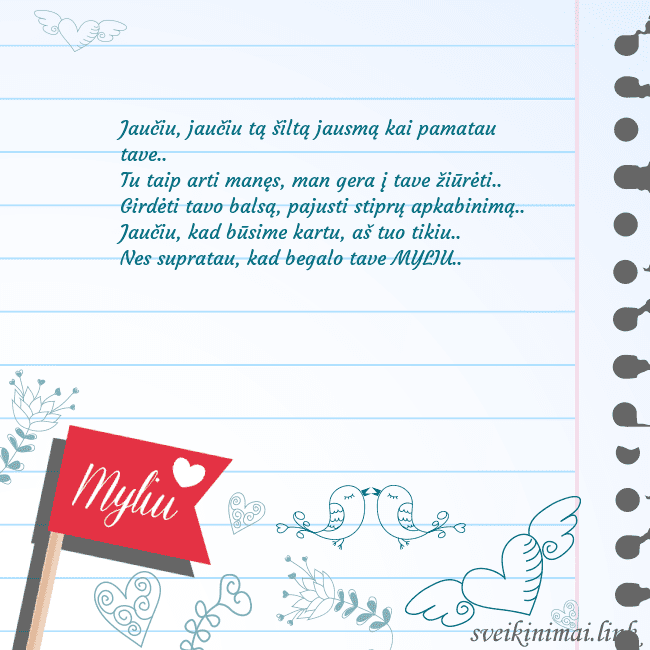 Jaučiu, jaučiu tą šiltą jausmą kai pamatau
tave..
Tu taip arti manęs, man gera į tave žiūrėti..
Girdėti tavo balsą, pajusti stiprų apkabinimą..
Jaučiu, kad būsime kartu, aš tuo tikiu..
Nes supratau, kad begalo tave MYLIU..
Myliu
sveikinimai.link